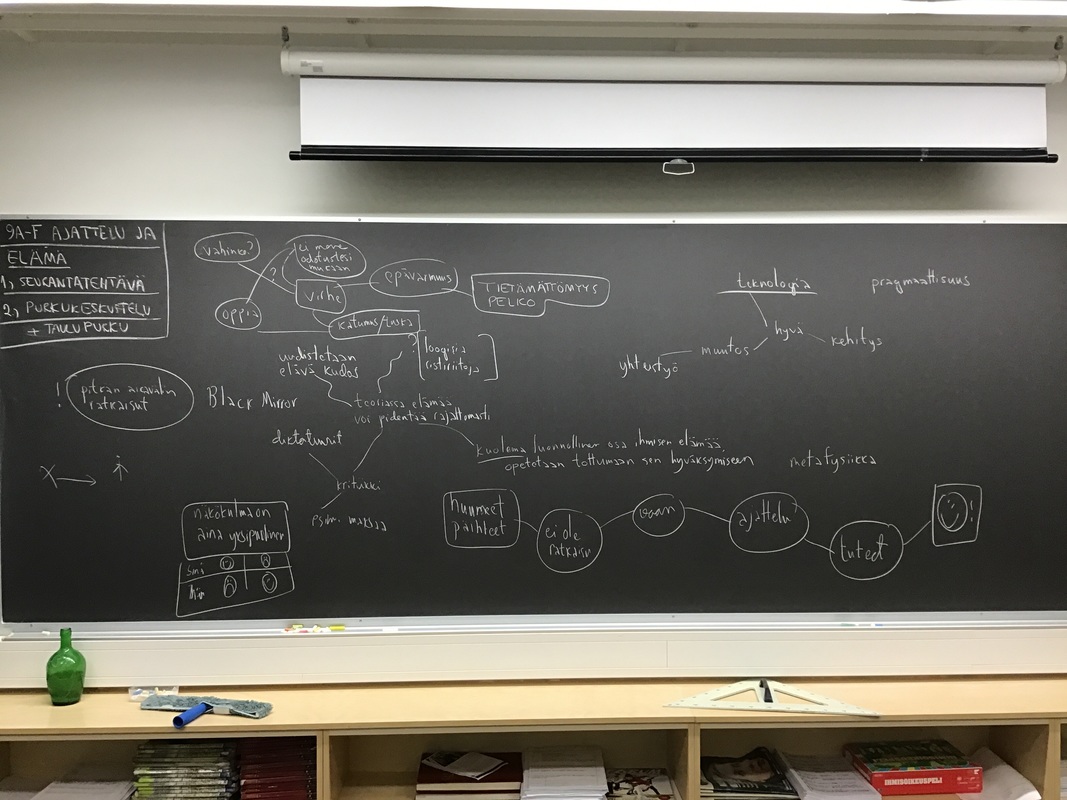 9A-F AJATTELU JA
ELÄMÄ
1, SEURANTATEHTÄVÄ
2, PURKUKESKUSTELU
+ TAULUPURKU
vahinko?
ei mene
odotustesi
mukaan
?
virhe
epävarmuus
TIETÄMÄTTÖMYYS
PELKO
oppia
katumus/tuska
?
loogisia
ristiriitoja
uudistetaan
elävä kudos
teoriassa elämää
voi pidentää rajattomasti
! pitkän aikavälin
ratkaisut
Black Mirror
diktatuurit
kritiikki
kuolema luonnollinen osa ihmisen elämää,
opetetaan tottumaan sen hyväksymiseen
metafysiikka
teknologia
pragmaattisuus
hyvä
kehitys
muutos
yhteistyö
X
näkökulma on
aina yksipuolinen
Sinä
Hän
huumeet
päihteet
ei ole
ratkaisu
vaan
ajattelu
tuteet
!
IHMISOIKEUSPELI